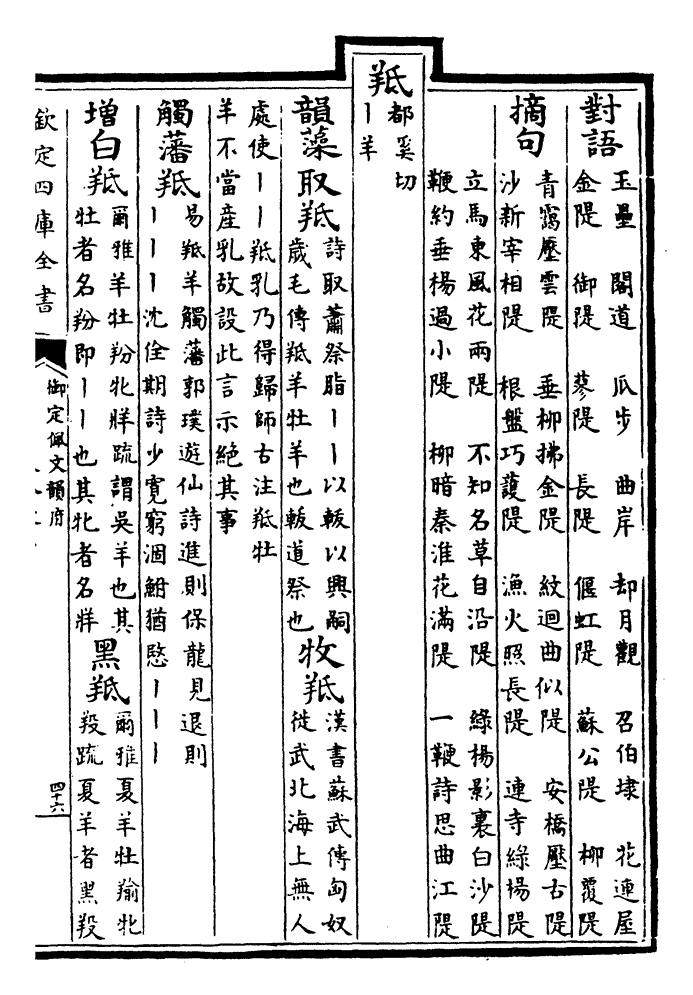 對語
玉壘　閣道　瓜步　曲岸　却月觀　召伯埭　花連屋
金隄　御隄　蓼隄　長隄　偃虹隄　蘇公隄　柳覆隄
摘句
青靄壓雲隄　垂柳拂金隄　紋迴曲似隄　安橋壓古隄
沙新宰相隄　根盤巧䕶隄　漁火照長隄　連寺綠楊隄
立馬東風花兩隄　不知名草自沿隄　綠楊影裏白沙隄
鞭約垂楊過小隄　柳暗秦淮花滿隄　一鞭詩思曲江隄
羝
都奚切
丨羊
韻藻
取羝
詩取蕭祭脂丨丨以軷以興嗣
歲毛傳羝羊牡羊也軷道祭也
牧羝
漢書蘇武傳匈奴
徙武北海上無人
處使丨丨羝乳乃得歸師古注羝牡
羊不當産乳故設此言示絶其事
觸藩羝
易羝羊觸藩郭璞遊仙詩進則保龍見退則
丨丨丨沈佺期詩少寛窮涸鮒猶愍丨丨丨
增白羝
爾雅羊牡羒牝牂疏謂吳羊也其
牡者名羒即丨丨也其牝者名牂
黑羝
爾雅夏羊牡羭牝
羖疏夏羊者黑羖
欽定四庫全書
御定佩文韻府
四十六